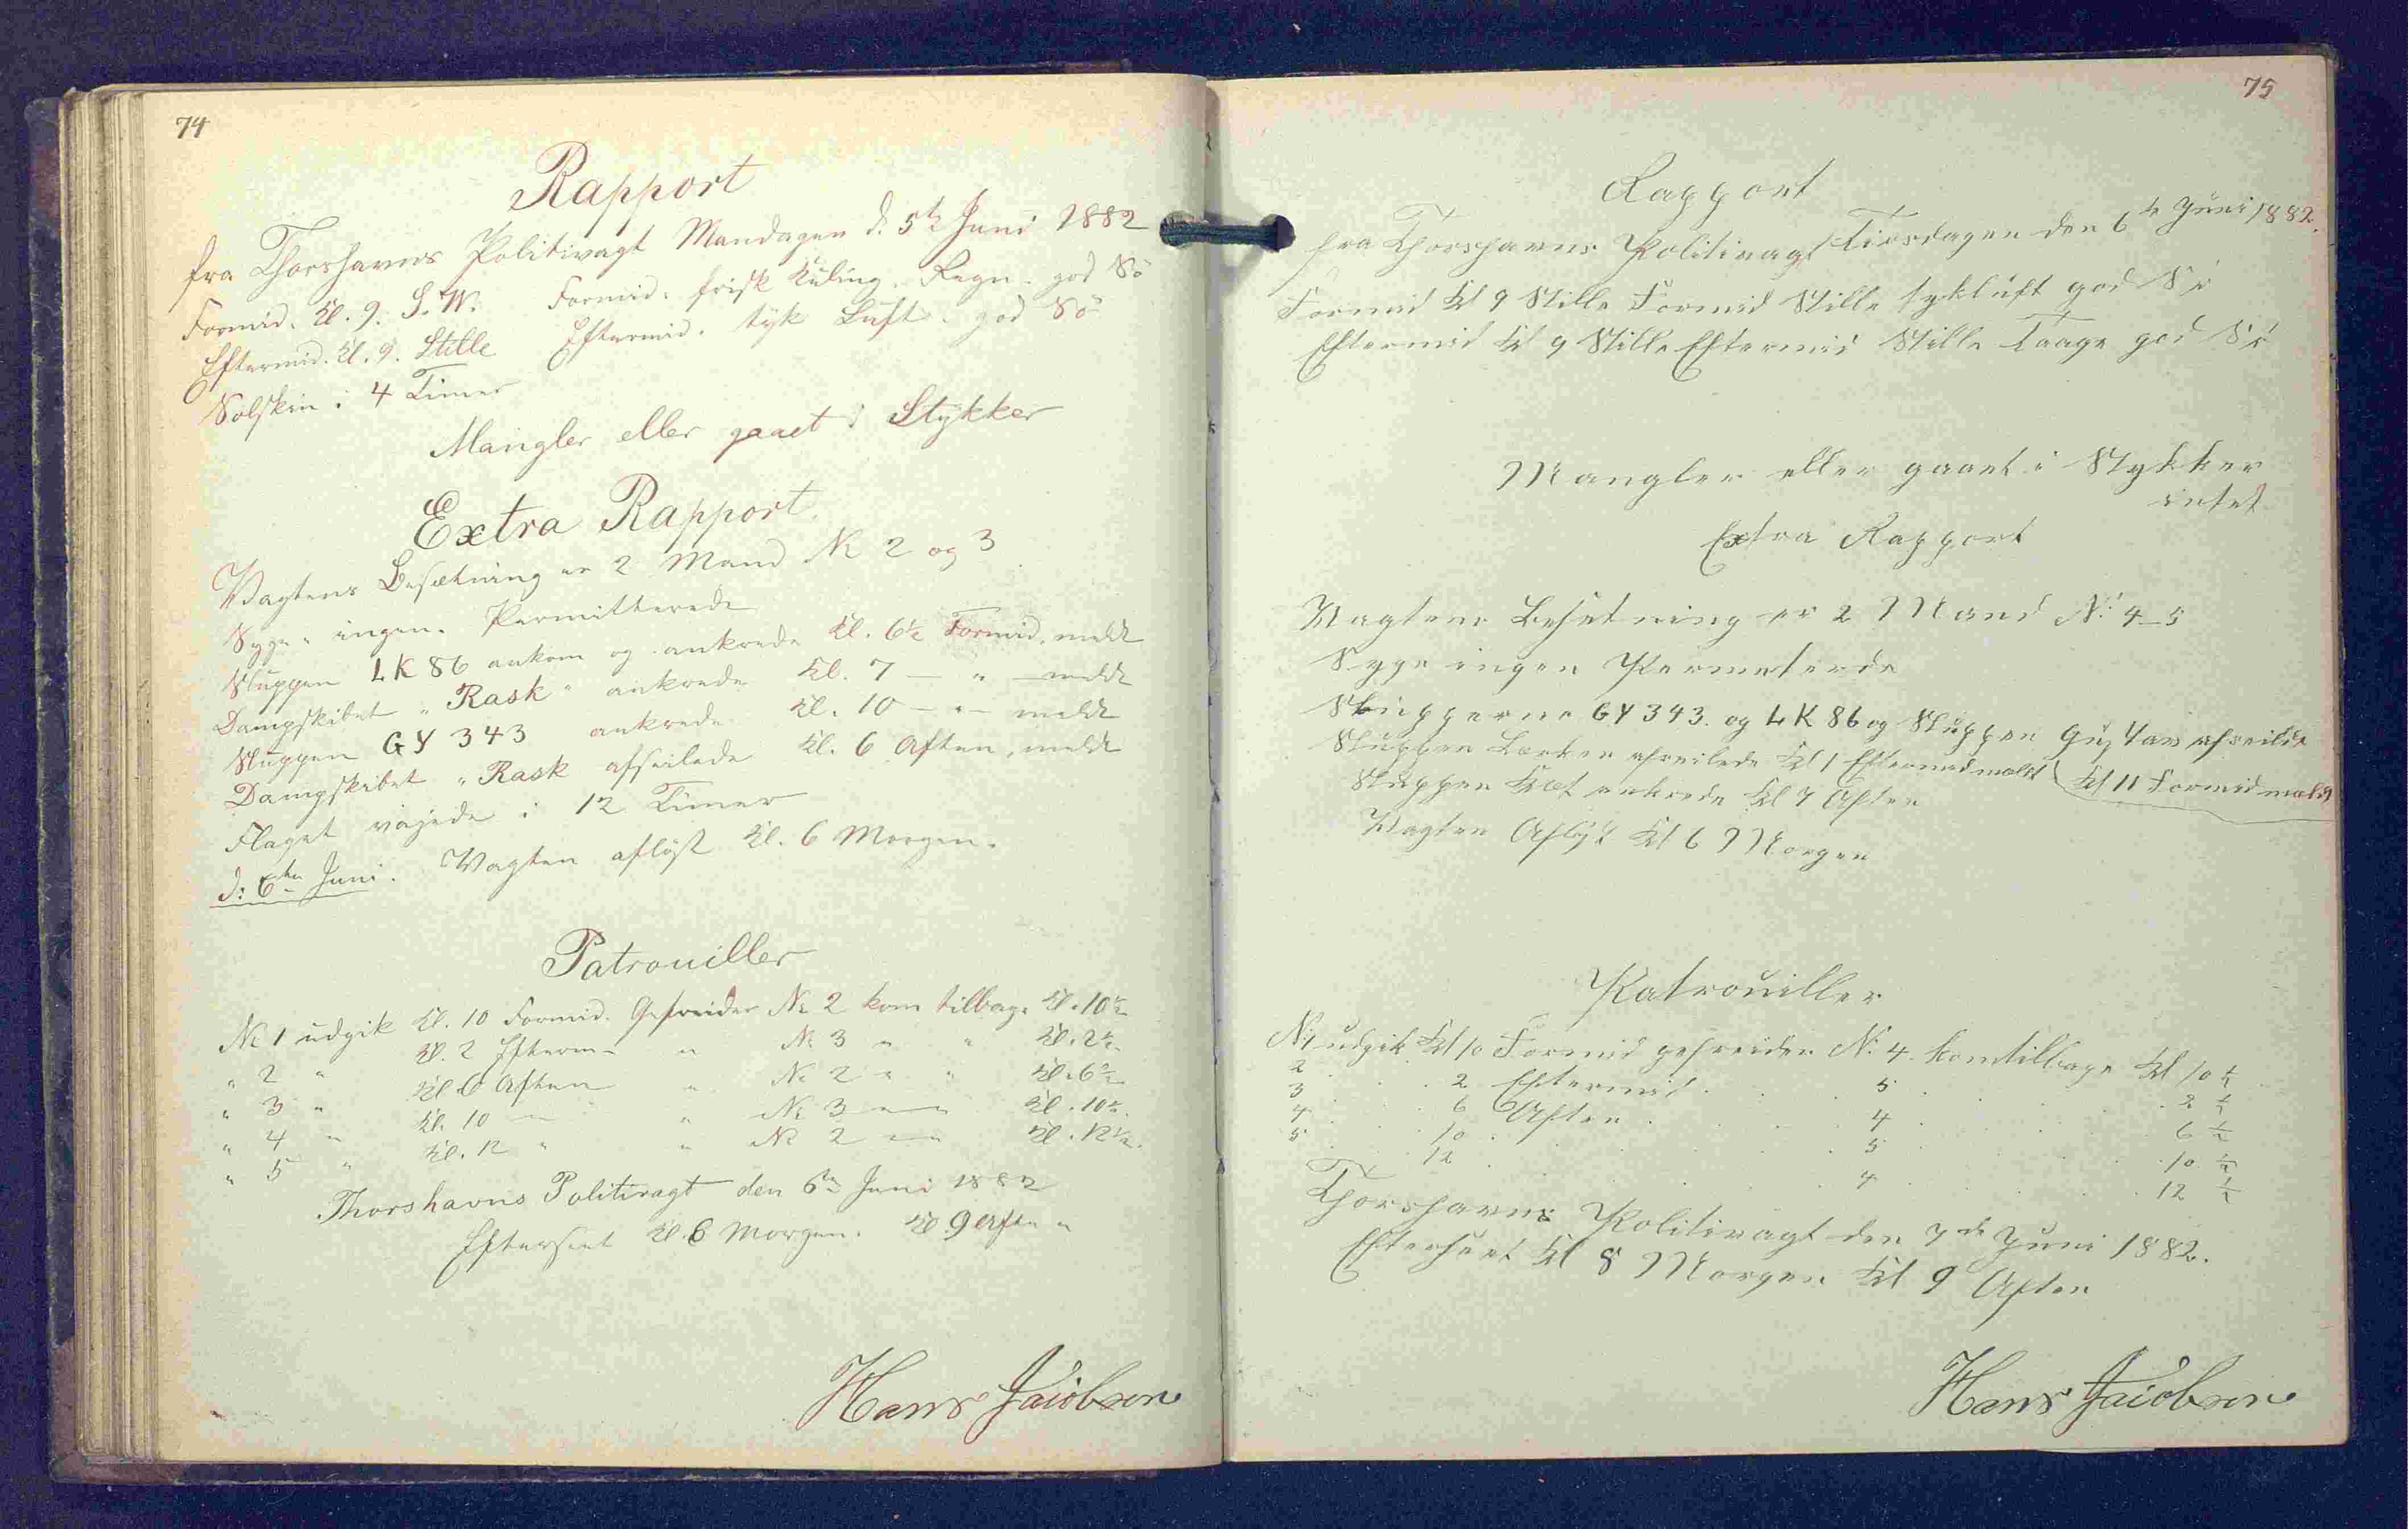 74
Rapport
fra Thorshavns Politivagt Mandagen d. 5te Juni 1882
Formid. Kl. 9. S.W. Formid. frisk Kuling. Regn. god Sö
Eftermid. Kl. 9. Stille Eftermid. tyk Luft. god Sö
Solskin i 4 Timer
Mangler eller gaaet i Stykker
Extra Rapport
Vagtens Besætning er 2 Mand № 2 og 3
Syge " ingen. Permitterede
Sluppen LK 86 ankom og ankrede Kl. 6½ Formid. meldt
Dampskibet "Rask" ankrede Kl. 7 — " — meldt
Sluppen GY 343 ankrede Kl. 10 — " — meldt
Dampskibet "Rask afseilede Kl. 6 Aften, meldt
Flaget vajede i 12 Timer
d: 6te Juni. Vagten aflöst Kl. 6 Morgen.
Patrouiller
№ 1 udgik Kl. 10 Formid. Gefreider № 2 kom tilbage Kl. 10½
" 2 " Kl. 2 Efterm " № 3 " " Kl. 2½
" 3 " Kl. 6 Aften " № 2 " " Kl. 6½
" 4 " Kl. 10 — " № 3 — " Kl. 10½.
" 5 " Kl. 12 " " № 2 — " Kl. 12½.
Thorshavns Politivagt den 6te Juni 1882
Efterseet Kl. 6 Morgen. Kl 9 Aften
Hans Jacobsen
75
Rapport
fra Thorshavns Politivagt Tirsdagen den 6te Juni 1882.
Formid Kl 9 Stille Formid Stille tykluft god Sö
Eftermid Kl 9 Stille Eftermid Stille Taage god Sö
Mangler eller gaaet i Stykker
intet
Extra Rapport
Vagtens Besetning er 2 Mand N: 4-5
Syge ingen Permeterde
Slupperne GY 343. og LK 86 og Sluppen Gustav afseilde
Kl 11 Formid meldt
Sluppen Lerken afseilede Kl 1 Eftermid meldt
Sluppen ankrede Kl 7 Aften
Vagten Aflöst Kl 6 Morgen
Patrouiller
N: 1 udgik Kl 10 Formid gefreider N: 4. kom tilbage Kl 10 ½
2 . . 2 Eftermid . . 5 . . 2 ½
3 . . 6 Aften . . 4 . . 6 ½
4 . . 10 . . 5 . . 10 ½
5 . . 12 . . 4 . . 12 ½
Thorshavns Politivagt den 7de Juni 1882.
Efterseet Kl 8 Morgen Kl 9 Aften
Hans Jacobsen